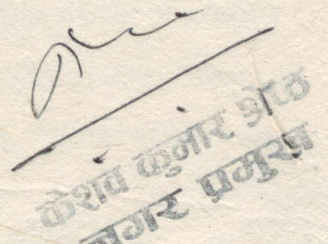 केशव कुमार श्रेष्ठ
नगर प्रमुख